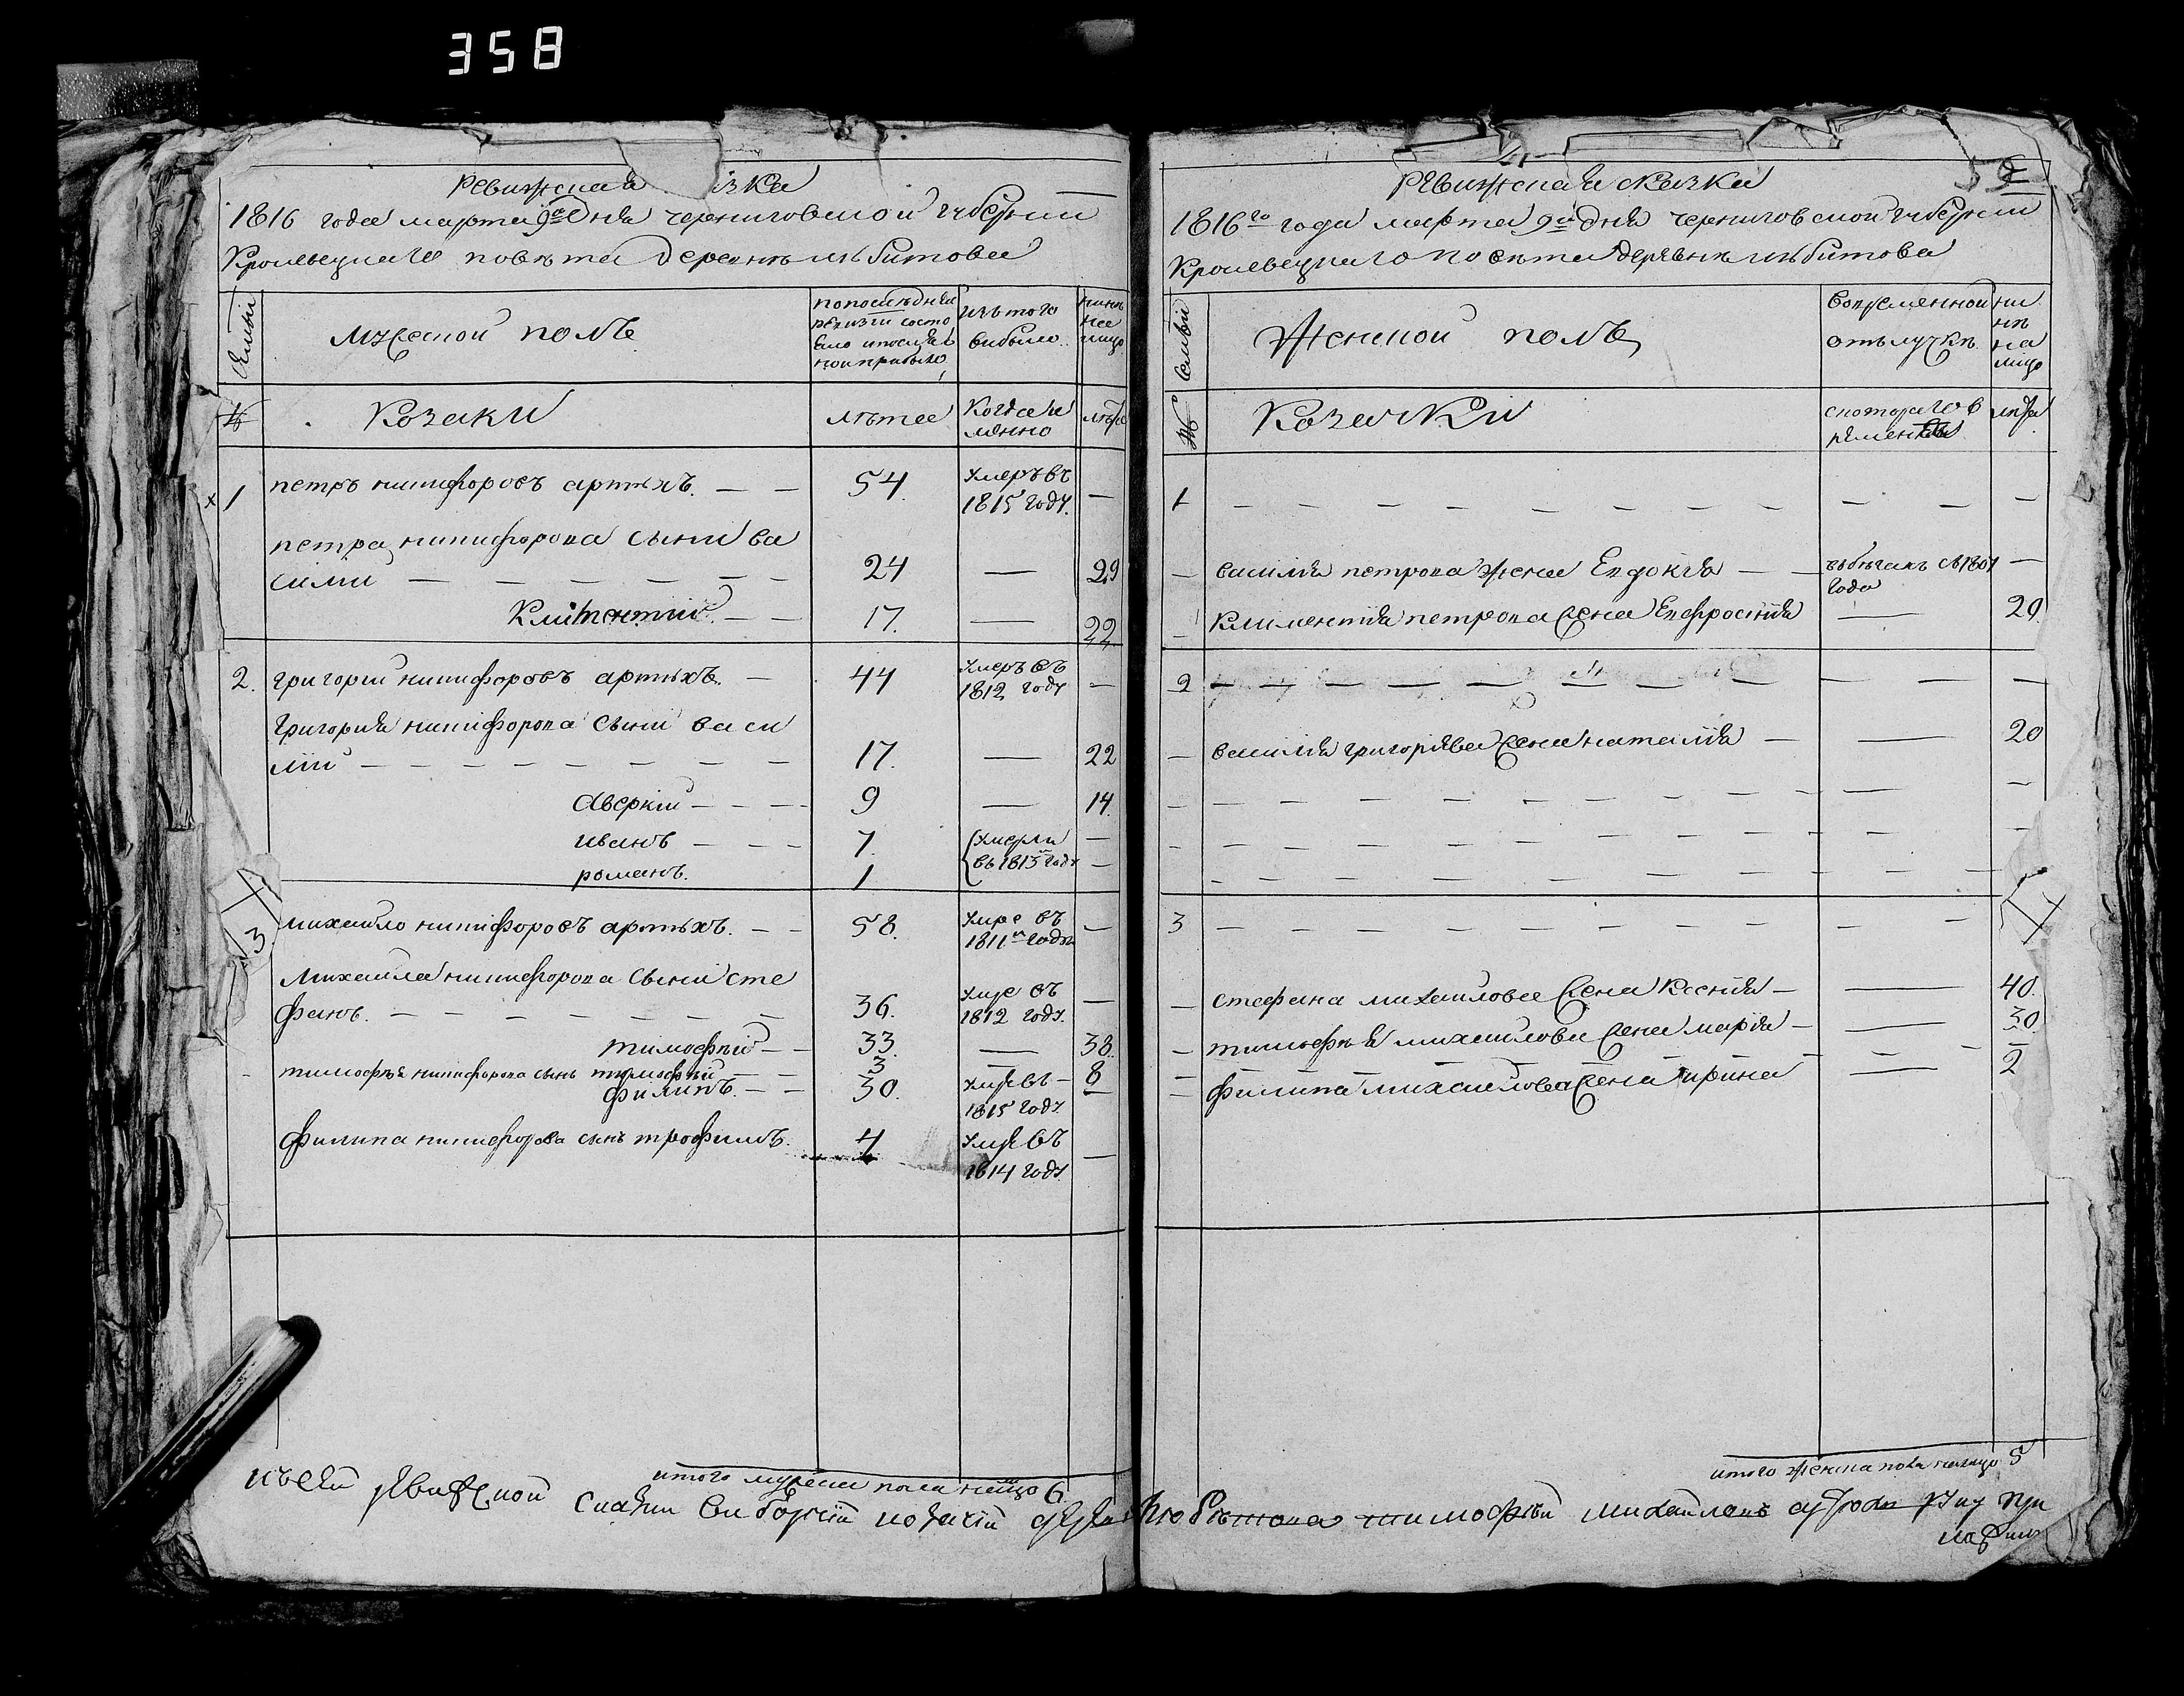 358
Ревижская  зка
1816 года марта 9го дня черниговской губернии
Кролевецкаго повѣта деревнѣ любитова
Семьи
мужеской полъ
попоследней ревизги состо яло ипослѣ ной прибыло
изътого выбыло
нинѣ на лицо
№ Козаки лѣта Когда имянно лѣта
1 петръ никифоровъ артюхъ. — — 54. умеръ въ 1815 году. —
петра никифорова сыни ва
силий — — — — — — 24 — 29
Климентий — — 17. — 22
2. григорий никифоровъ артюхъ. — 44 умеръ въ 1812 году —
григория никифорова сыни васи
лий — — — — — — — 17. — 22
аверкий — — — 9 — 14.
иванъ — — — 7. умерли въ 1813 году —
романъ. 1 —
3 михайло никифоровъ артюхъ. — — 58. умре въ 1811м году —
Михайла никифорова сыни сте
фанъ. — — — — — — — 36. умре въ 1812 году. —
тимофѣй — — 33. — 38.
тимофѣя никифорова сынъ тимофѣй — — 3 — 8
филипъ. — — 30. умре въ 1815 году —
филипа никифорова сынъ трофимъ. 4 умре въ 1814 году —
итого мужеска пола налицо 6
Ревижская сказка
59
1816го года марта 9го дня черниговской губернии
Кролевецкаго повѣта деревнѣ любитова
Семьи
Женской полъ
вовременной отълучкѣ
нинѣ на лицо
№ Козачки скоторагов ремени лѣта
1 — — — — — — — — — — —
— василия петрова жена Евдокия — — въбѣгахъ съ1801 года —
— Климентия петрова жена Евфросиния — 20.
2 — — — — — — — — — — —
— василия григориева жена наталия — — 20
— — — — — — — — — —
— — — — — — — — — —
— — — — — — — — — —
3 — — — — — — — — — —
— стефана михайлова жена Ксения — — 40.
— тимофѣя михайлова жена мария — — 30.
— — — — — — — —
— филипа михайлова жена ирина — 2
итого женска пола налицо 5
късей ревижской скаски виборний козакий деревни Любѣтова тимофѣй михайловъ артюхъ руку при
ложилъ